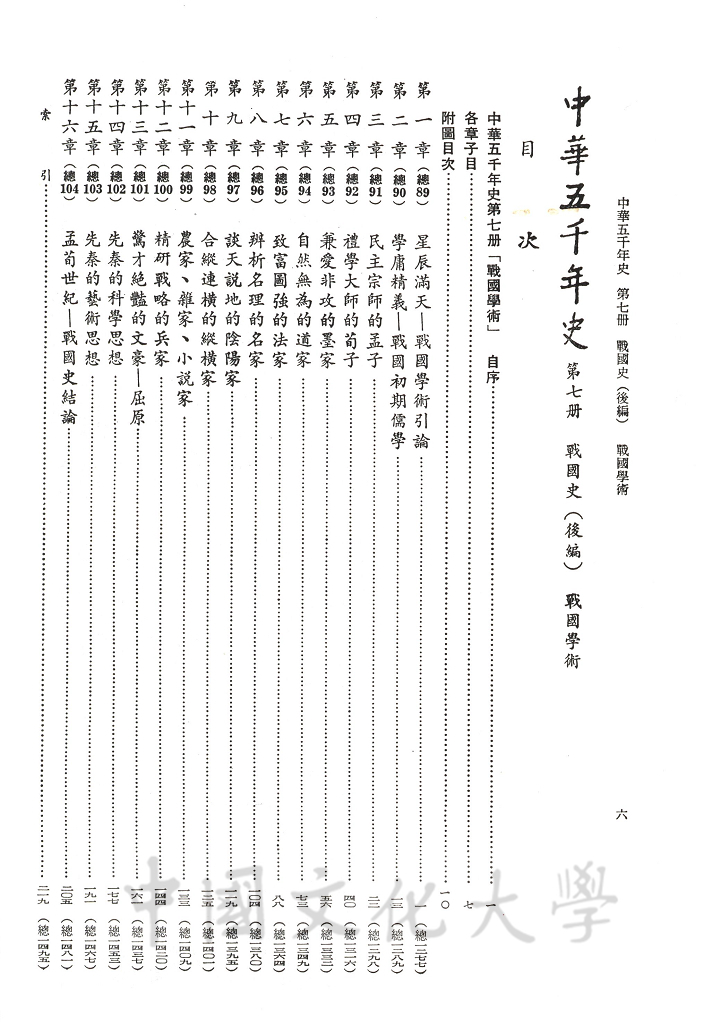 中華五千年史　第七册　戰國史（後編）　戰國學術
六
中華五千年史　第七册　戰國史（後編）　戰國學術
目　次
中華五千年史第七册「戰國學術」　自序……一
各章子目……七
附圖目次……一〇
第一章（總89）　星辰滿天—戰國學術引論……一（總一二七七）
第二章（總90）　學庸精義—戰國初期儒學……一三（總一二八九）
第三章（總91）　民主宗師的孟子……二二（總一二九八）
第四章（總92）　禮學大師的荀子……四〇（總一三一六）
第五章（總93）　兼愛非攻的墨家……五六（總一三三二）
第六章（總94）　自然無為的道家……七三（總一三四九）
第七章（總95）　致富圖強的法家……八八（總一三六四）
第八章（總96）　辨析名理的名家……一〇四（總一三八〇）
第九章（總97）　談天說地的陰陽家……一一九（總一三九五）
第十章（總98）　合縱連橫的縱橫家……一二五（總一四〇一）
第十一章（總99）　農家、雜家、小說家……一三三（總一四〇九）
第十二章（總100）　精研戰略的兵家……一四四（總一四二〇）
第十三章（總101）　驚才絕豔的文豪—屈原……一六一（總一四三七）
第十四章（總102）　先秦的科學思想……一七七（總一四五三）
第十五章（總103）　先秦的藝術思想……一九一（總一四六七）
第十六章（總104）　孟荀世紀—戰國史結論……二〇五（總一四八一）
索　引……二一九（總一四九五）
中國文化大學